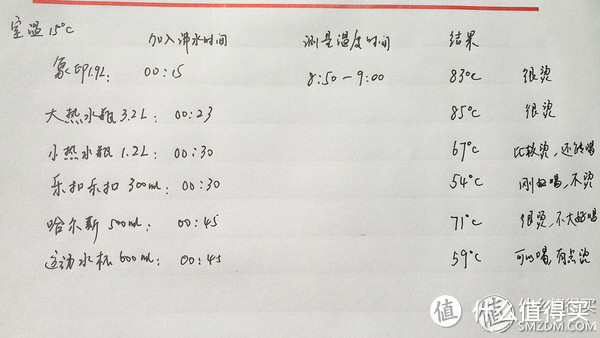 室温15°C
加入沸水时间 测量温度时间 结果
象印1.9L: 00:15 8:50—9:00 83°C 很烫
大热水瓶3.2L: 00:23 85°C 很烫
小热水瓶1.2L: 00:30 67°C 比较烫,还能喝
乐扣乐扣300ml: 00:30 54°C 刚好喝,不烫
哈尔斯500ml: 00:45 71°C 很烫,不大好喝
运动水杯600ml: 00:45 59°C 可以喝,有点烫
值 什么值得买
SMZDM.COM